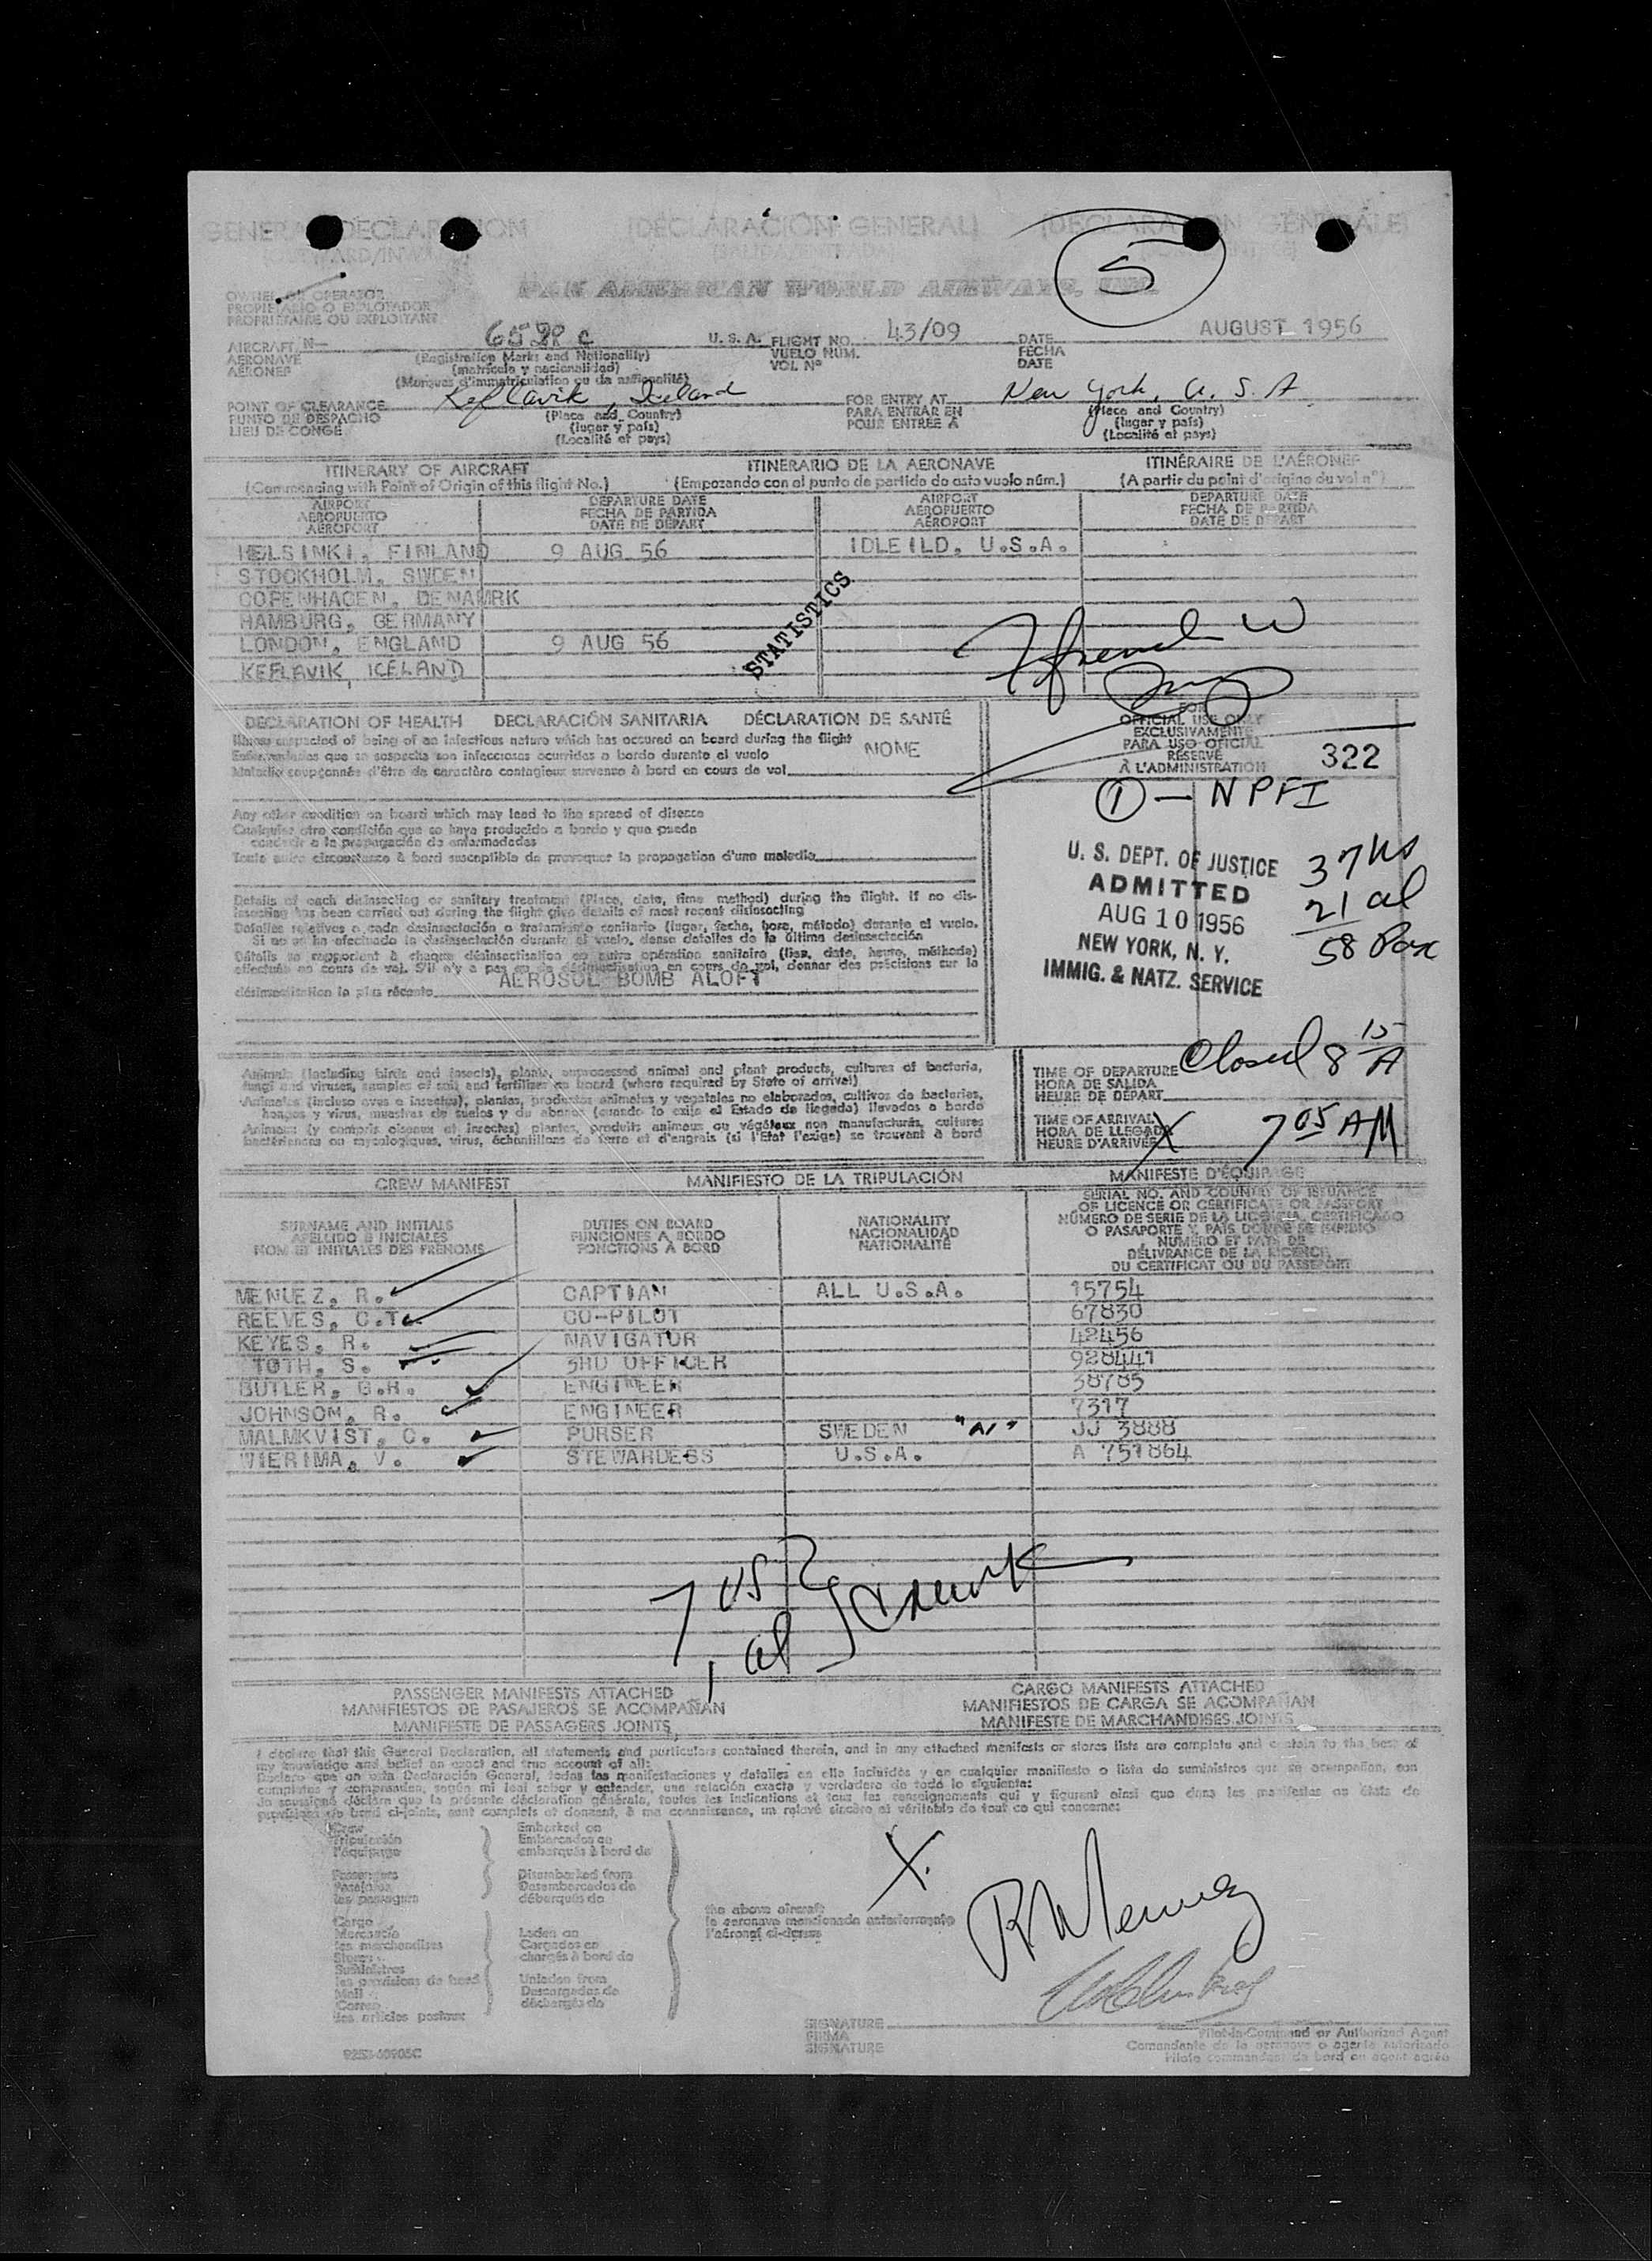 GENERAL DECLARATION (DECLARACIÓN GENERAL) (DECLARATION GÉNÉRALE)
(OUTWARD/INWARD) (SALIDA/ENTRADA)
5
PAN AMERICAN WORLD AIRWAYS, INC.
OWNER OR OPERATOR
PROPIETARIO O EXPLOTADOR
PROPRIÉTAIRE OU EXPLOITANT
AIRCRAFT N— U. S. A. FLIGHT NO. 43/09 DATE AUGUST 1956
AERONAVE (Registration Marks and Nationality) VUELO NÚM. FECHA
AÉRONEF (matrícula y nacionalidad) VOL Nº DATE
(Marques d'immatriculation ou da nationalité)
POINT OF CLEARANCE Keflavik, Iceland FOR ENTRY AT New York, U. S. A
PUNTO DE DESPACHO (Place and Country) PARA ENTRAR EN (Place and Country)
LIEU DE CONGÉ (lugar y país) POUR ENTRÉE À (lugar y país)
(Localité et pays) (Localité et pays)
ITINERARY OF AIRCRAFT ITINERARIO DE LA AERONAVE ITINÉRAIRE DE L'AÉRONEF
(Commencing with Point of Origin of this flight No.) (Empezando con el punto de partida de esta vuelo núm.) (A partir du point d'origine du vol nº)
AIRPORT DEPARTURE DATE AIRPORT DEPARTURE DATE
AEROPUERTO FECHA DE PARTIDA AEROPUERTO FECHA DE PARTIDA
AÉROPORT DATE DE DÉPART AÉROPORT DATE DE DÉPART
HELSINKI, FINLAND 9 AUG 56 IDLEILD, U.S.A.
STOCKHOLM, SWDEN
COPENHAGEN, DENAMRK
HAMBURG, GERMANY
LONDON, ENGLAND 9 AUG 56
KEFLAVIK, ICELAND
STATISTICS
DECLARATION OF HEALTH DECLARACIÓN SANITARIA DÉCLARATION DE SANTÉ
Illness suspected of being of an infectious nature which has occured on board during the flight NONE
Enfermedades que se sospecha son infecciosas ocurridas a bordo durante el vuelo
Maladie soupçonnée d'être de caractère contagieux survenue à bord en cours de vol
FOR
OFFICIAL USE ONLY
EXCLUSIVAMENTE
PARA USO OFICIAL
RÉSERVÉ
À L'ADMINISTRATION
322
1 — NPFI
Any other condition on board which may lead to the spread of disease
Cualquier otra condición que se haya producido a bordo y que pueda
conducir a la propagación de enfermedades
Toute autre circonstance à bord susceptible de provoquer la propagation d'une maladie
Details of each disinsecting or sanitary treatment (Place, date, time method) during the flight. If no dis-
insecting has been carried out during the flight give details of most recent disinsecting
Detalles relativos a cada desinsectación o tratamiento sanitario (lugar, fecha, hora, método) durante el vuelo.
Si no se ha efectuado la desinsectación durante el vuelo, dense detalles de la última desinsectación
Détails se rapportant à chaque désinsectisation ou autre opération sanitaire (lieu, date, heure, méthode)
effectuée en cours de vol. S'il n'y a pas eu de désinsectisation en cours de vol, donner des précisions sur la
désinsectisation la plus récente AEROSOL BOMB ALOFT
U. S. DEPT. OF JUSTICE
ADMITTED
AUG 10 1956
NEW YORK, N. Y.
IMMIG. & NATZ. SERVICE
37 us
21 al
58 Pax
Animals (including birds and insects), plants, unprocessed animal and plant products, cultures of bacteria,
fungi and viruses, samples of soil and fertilizer on board (where required by State of arrival)
Animales (incluso aves e insectos), plantas, productos animales y vegetales no elaborados, cultivos de bacterias,
hongos y virus, muestras de suelos y de abonos (cuando lo exija el Estado de llegada) llevados a bordo
Animaux (y compris oiseaux et insectes) plantes, produits animaux ou végétaux non manufacturés, cultures
bactériennes ou mycologiques, virus, échantillons de terre et d'engrais (si l'Etat l'exige) se trouvant à bord
TIME OF DEPARTURE Closed 8 15 A
HORA DE SALIDA
HEURE DE DÉPART
TIME OF ARRIVAL
HORA DE LLEGADA X 7 05 AM
HEURE D'ARRIVÉE
CREW MANIFEST MANIFIESTO DE LA TRIPULACIÓN MANIFESTE D'ÉQUIPAGE
SURNAME AND INITIALS DUTIES ON BOARD NATIONALITY SERIAL NO. AND COUNTRY OF ISSUANCE
APELLIDO E INICIALES FUNCIONES A BORDO NACIONALIDAD OF LICENCE OR CERTIFICATE OR PASSPORT
NOM ET INITIALES DES PRÉNOMS FONCTIONS À BORD NATIONALITÉ NÚMERO DE SERIE DE LA LICENCIA, CERTIFICADO
O PASAPORTE Y PAÍS DONDE SE EXPIDIÓ
NUMÉRO ET PAYS DE
DÉLIVRANCE DE LA LICENCE,
DU CERTIFICAT OU DU PASSEPORT
MENUEZ, R. CAPTIAN ALL U.S.A. 15754
REEVES, C.T. CO-PILOT 67830
KEYES, R. NAVIGATOR 42456
TOTH, S. 3RD OFFICER 928441
BUTLER, G.R. ENGINEER 38785
JOHNSON, R. ENGINEER 7317
MALMKVIST, C. PURSER SWEDEN JJ 3888
WIERIMA, V. STEWARDESS U.S.A. A 751864
7 US
1 al
PASSENGER MANIFESTS ATTACHED CARGO MANIFESTS ATTACHED
MANIFIESTOS DE PASAJEROS SE ACOMPAÑAN MANIFIESTOS DE CARGA SE ACOMPAÑAN
MANIFESTE DE PASSAGERS JOINTS MANIFESTE DE MARCHANDISES JOINTS
I declare that this General Declaration, all statements and particulars contained therein, and in any attached manifests or stores lists are complete and contain to the best of
my knowledge and belief an exact and true account of all:
Declaro que en esta Declaración General, todas las manifestaciones y detalles en ella incluídos y en cualquier manifiesto o lista de suministros que se acompañan, son
completas y comprenden, según mi leal saber y entender, una relación exacta y verdadera de todo lo siguiente:
Je soussigné déclare que la présente déclaration générale, toutes les indications et tous les renseignements qui y figurent ainsi que dans les manifestes ou états de
provisions de bord ci-joints, sont complets et donnent, à ma connaissance, un relevé sincère et véritable de tout ce qui concerne:
Crew Embarked on
Tripulación Embarcados en
l'équipage embarqués à bord de
Passengers Disembarked from
Pasajeros Desembarcados de
les passagers débarqués de
the above aircraft
la aeronave mencionada anteriormente
l'aéronef ci-dessus
X.
R Menuez
Cargo
Mercancía Laden on
les marchandises Cargados en
Stores chargés à bord de
Suministros
les provisions de bord Unladen from
Mail Descargados de
Correo déchargés de
les articles postaux
SIGNATURE
FIRMA
SIGNATURE
Pilot-in-Command or Authorized Agent
Comandante de la aeronave o agente autorizado
Pilote commandant de bord ou agent agréé